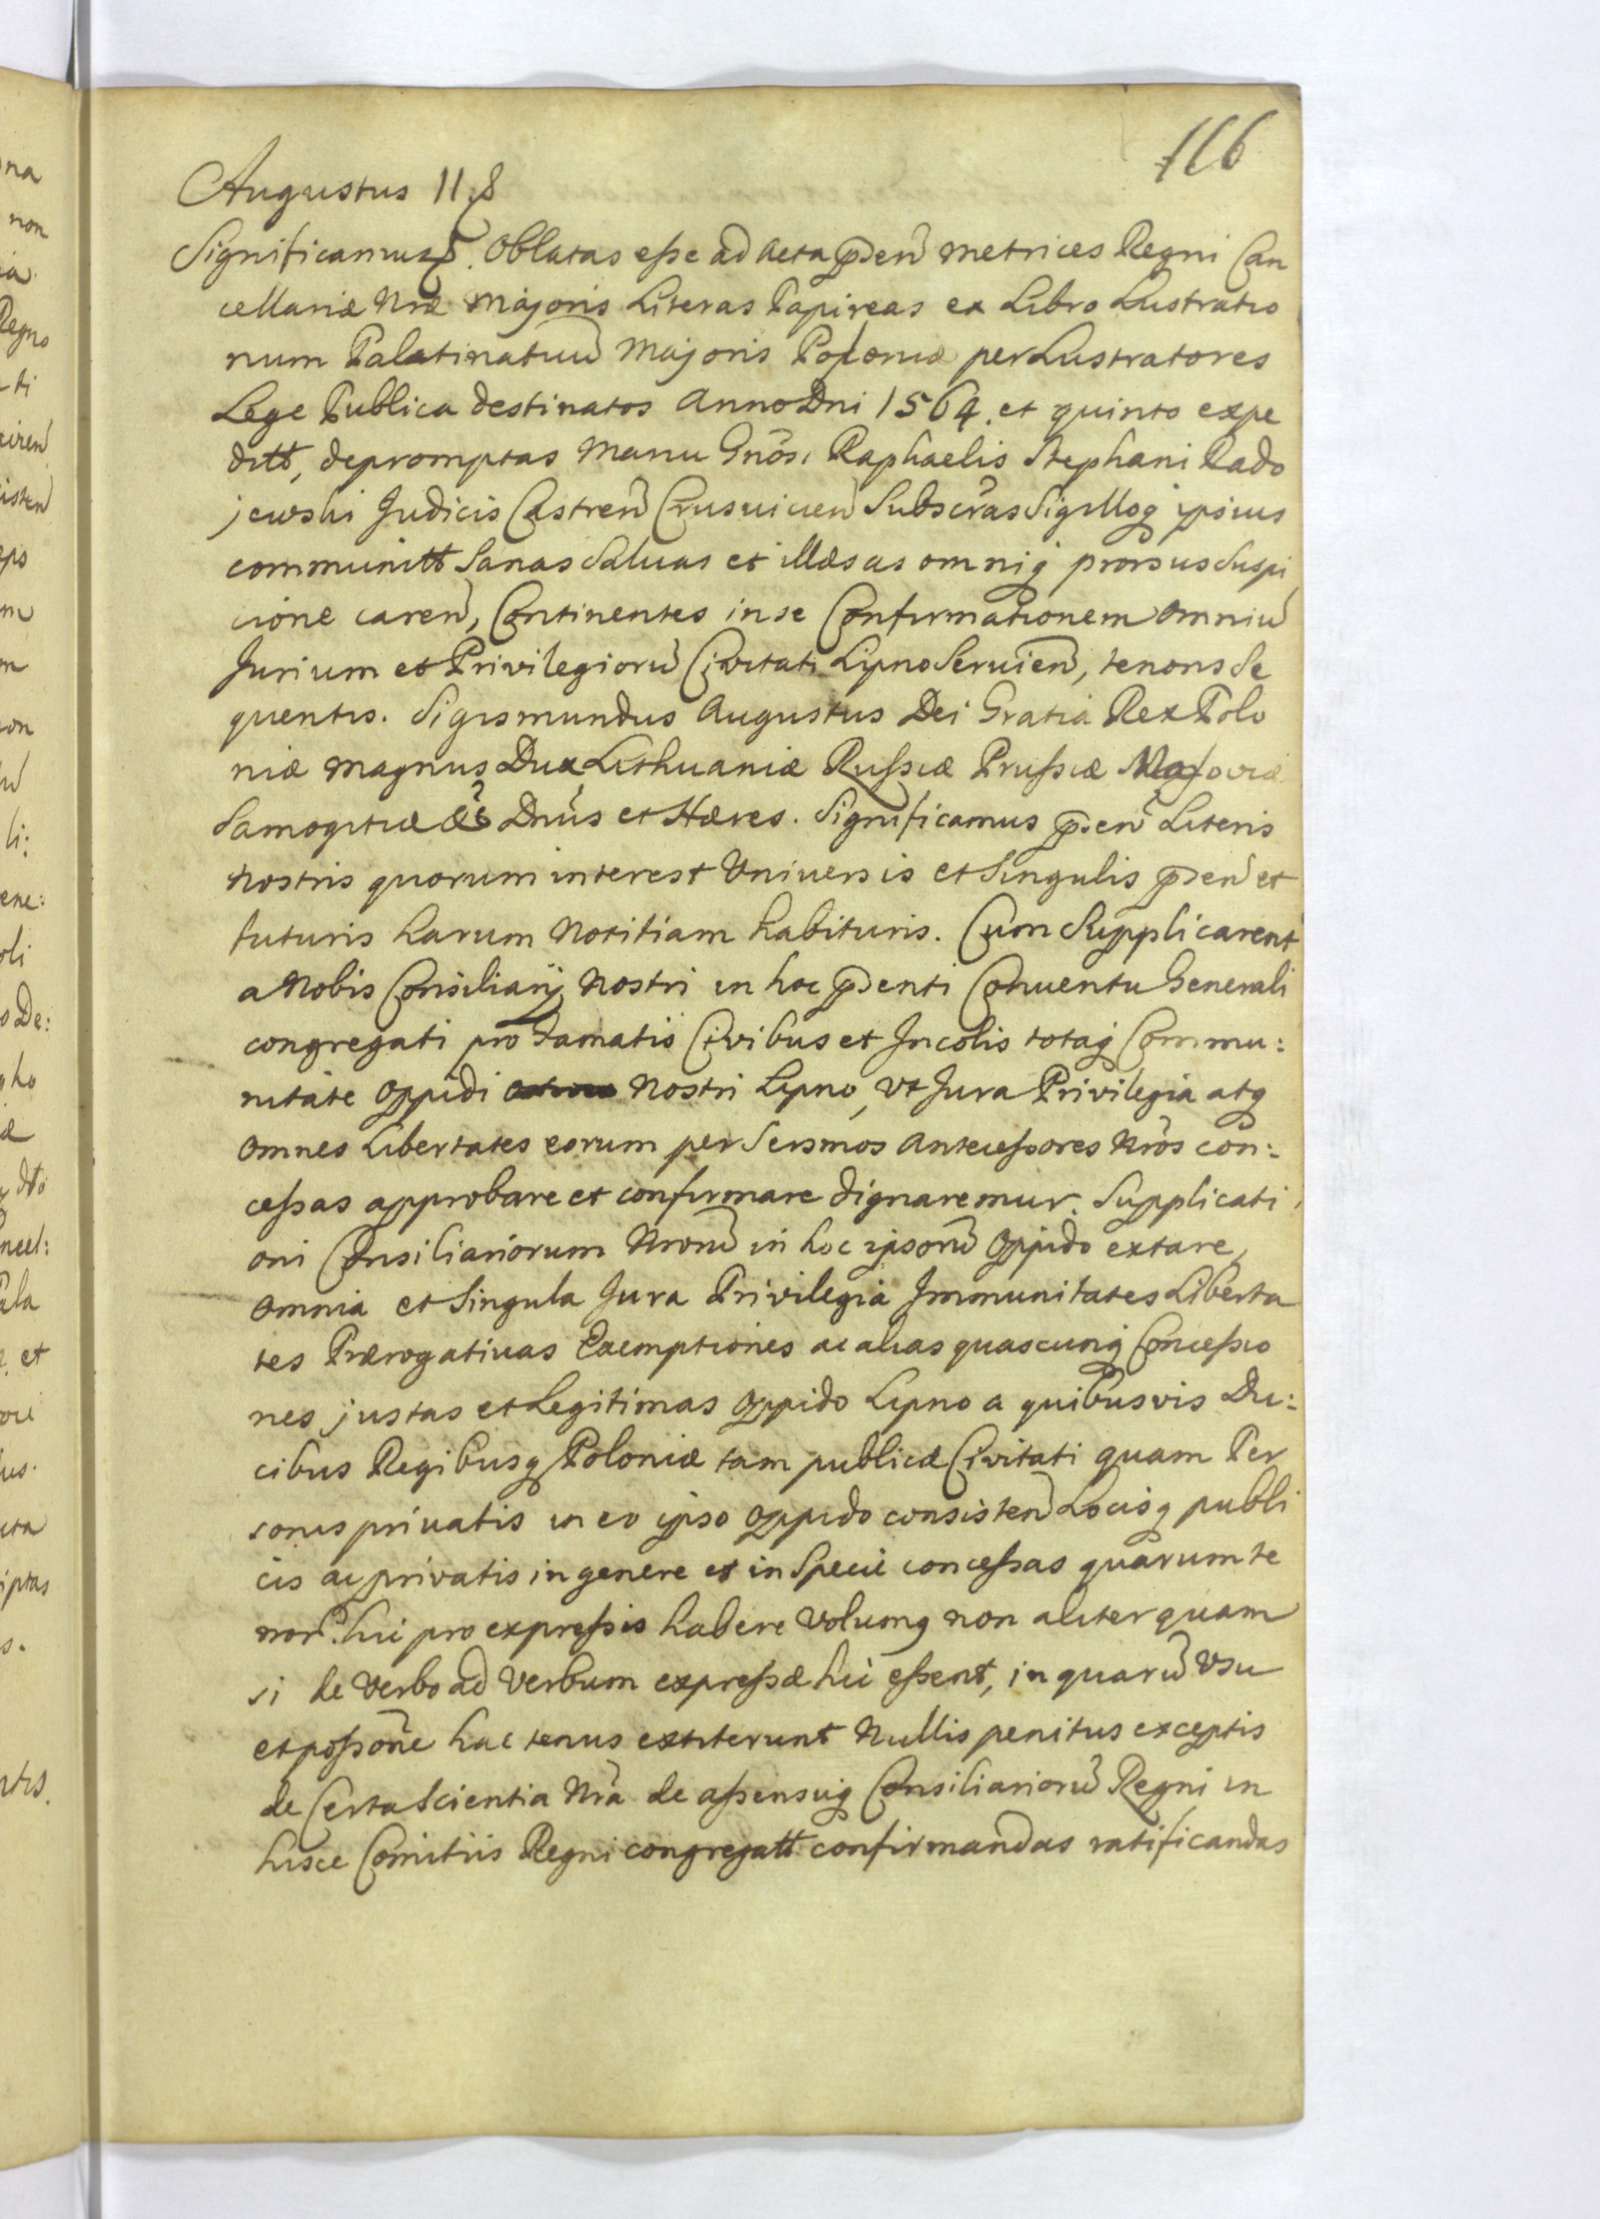 116
Augustus II &
Significamus &. Oblatas esse ad Acta p̃sen̄ metrices Regni Can
cellariæ Nræ Majoris Literas Papireas ex Libro Lustratio
num Palatinatuū Majoris Poloniæ per Lustratores
Lege Publica destinatos Anno Dni 1564. et quinto expe
ditt, depromptas Manu Gnosi Raphaelis Stephani Rado
jewski Judicis Castren̄ Crusvicien̄ Subscr̃as Sigilloq ipsius
communitt Sanas Salvas et illæsas omniq prorsus Suspi
cione caren̄, Continentes in se Confirmationem Omniū
Jurium et Privilegiorū Civitati Lipno Servien̄, tenoris Se
quentis. Sigismundus Augustus Dei Gratia Rex Polo
niæ Magnus Dux Lithuaniæ Russiæ Prussiæ Masoviæ
Samogitiæ & Dnus et Hæres. Significamus p̃sen̄ Literis
Nostris quorum interest Universis et Singulis p̃sen̄ et
futuris harum Notitiam habituris. Cum Supplicarent
a Nobis Consiliarij Nostri in hoc p̃senti Conventu Generali
congregati pro Famatis Civibus et Incolis totaq Commu:
nitate Oppidi Nostri Lipno, vt Jura Privilegia atq
Omnes Libertates eorum per Sersmos Antecessores Nros con:
cessas approbare et confirmare dignaremur. Supplicati
oni Consiliariorum Nrorū in hoc ipsorū Oppido extare,
Omnia et Singula Jura Privilegia Immunitates Liberta
tes Prærogativas Exemptiones ac alias quascunq Concessio
nes justas et Legitimas Oppido Lipno a quibusvis Du:
cibus Regibusq Poloniæ tam publicæ Civitati quam Per
sonis privatis in eo ipso Oppido consisten̄ Locisq publi
cis ac privatis in genere et in Specie concessas quarum te
nor. hic pro expressis habere Volumq non aliter quam
si de Verbo ad Verbum expressæ hic essent, in quarū Vsu
et possone hactenus extiterunt Nullis penitus exceptis
de Certa Scientia Nra de assensuq Consiliariorū Regni in
hisce Comitiis Regni congregatt confirmandas ratificandas